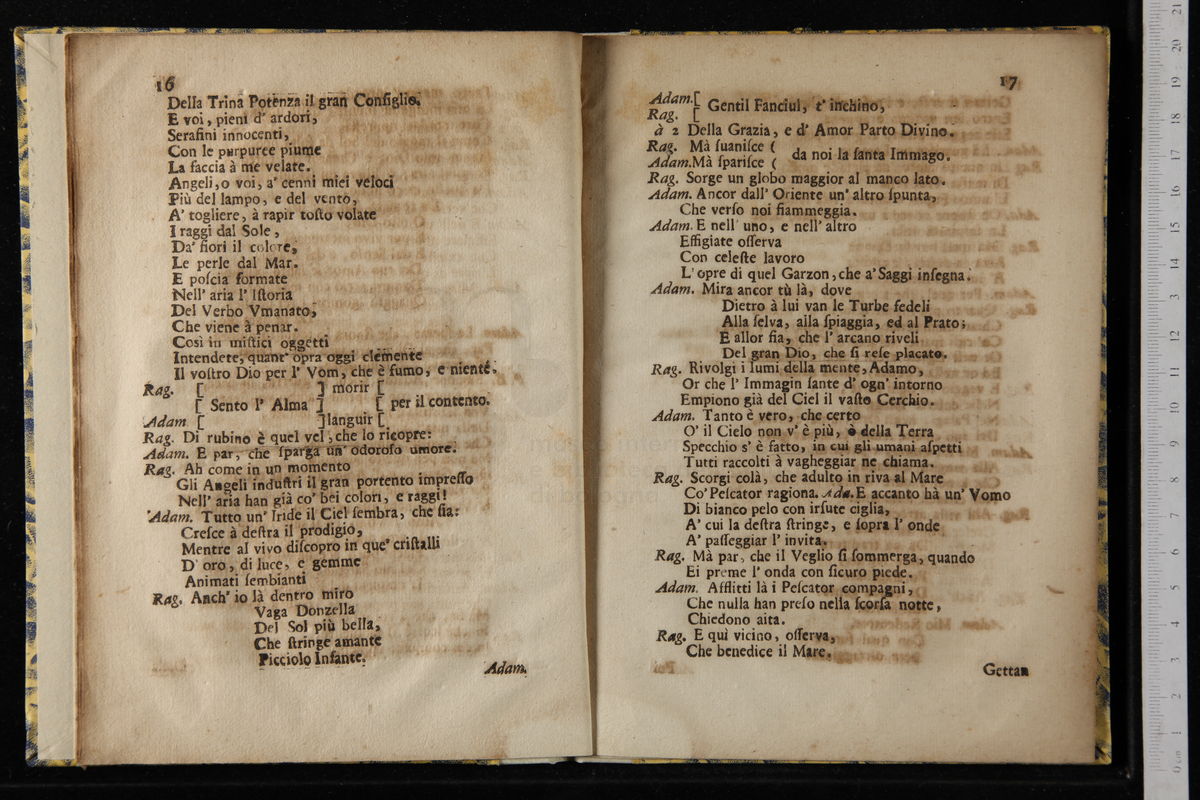 16
Della Trina Potenza il gran Conſiglio.
E voi, pieni d' ardori,
Serafini innocenti,
Con le purpuree piume
La faccia à me velate.
Angeli, o voi, a' cenni miei veloci
Più del lampo, e del vento,
A' togliere, à rapir toſto volate
I raggi dal Sole,
Da' fiori il colore,
Le perle dal Mar.
E poſcia formate
Nell' aria l' Iſtoria
Del Verbo Vmanato,
Che viene à penar.
Così in miſtici oggetti
Intendete, quant' opra oggi clemente
Il voſtro Dio per l' Vom, che è fumo, e niente.
Rag. [ ] morir [
[ Sento l' Alma ] [ per il contento.
Adam [ ] languir [
Rag. Di rubino è quel vel, che lo ricopre:
Adam. E par, che ſparga un' odoroſo umore.
Rag. Ah come in un momento
Gli Angeli induſtri il gran portento impreſſo
Nell' aria han già co' bei colori, e raggi!
Adam. Tutto un' Iride il Ciel ſembra, che ſia:
Creſce à deſtra il prodigio,
Mentre al vivo diſcopro in que' criſtalli
D' oro, di luce, e gemme
Animati ſembianti
Rag. Anch' io là dentro miro
Vaga Donzella
Del Sol più bella,
Che ſtringe amante
Picciolo Infante.
Adam.
17
Adam. [
Rag. [ Gentil Fanciul, t' inchino,
à 2 Della Grazia, e d' Amor Parto Divino.
Rag. Mà ſuaniſce (
Adam. Mà ſpariſce ( da noi la ſanta Immago.
Rag. Sorge un globo maggior al manco lato.
Adam. Ancor dall' Oriente un' altro ſpunta,
Che verſo noi fiammeggia.
Adam. E nell' uno, e nell' altro
Effigiate oſſerva
Con celeſte lavoro
L' opre di quel Garzon, che a' Saggi inſegna.
Adam. Mira ancor tù là, dove
Dietro à lui van le Turbe fedeli
Alla ſelva, alla ſpiaggia, ed al Prato;
E allor fia, che l' arcano riveli
Del gran Dio, che ſi reſe placato.
Rag. Rivolgi i lumi della mente, Adamo,
Or che l' Immagin ſante d' ogn' intorno
Empiono già del Ciel il vaſto Cerchio.
Adam. Tanto è vero, che certo
O' il Cielo non v' è più, ò della Terra
Specchio s' è fatto, in cui gli umani aſpetti
Tutti raccolti à vagheggiar ne chiama.
Rag. Scorgi colà, che adulto in riva al Mare
Co' Peſcator ragiona. Ada. E accanto hà un' Vomo
Di bianco pelo con irſute ciglia,
A' cui la deſtra ſtringe, e ſopra l' onde
A' paſſeggiar l' invita.
Rag. Mà par, che il Veglio ſi ſommerga, quando
Ei preme l' onda con ſicuro piede.
Adam. Afflitti là i Peſcator compagni,
Che nulla han preſo nella ſcorſa notte,
Chiedono aita.
Rag. E quì vicino, oſſerva,
Che benedice il Mare.
Gettan